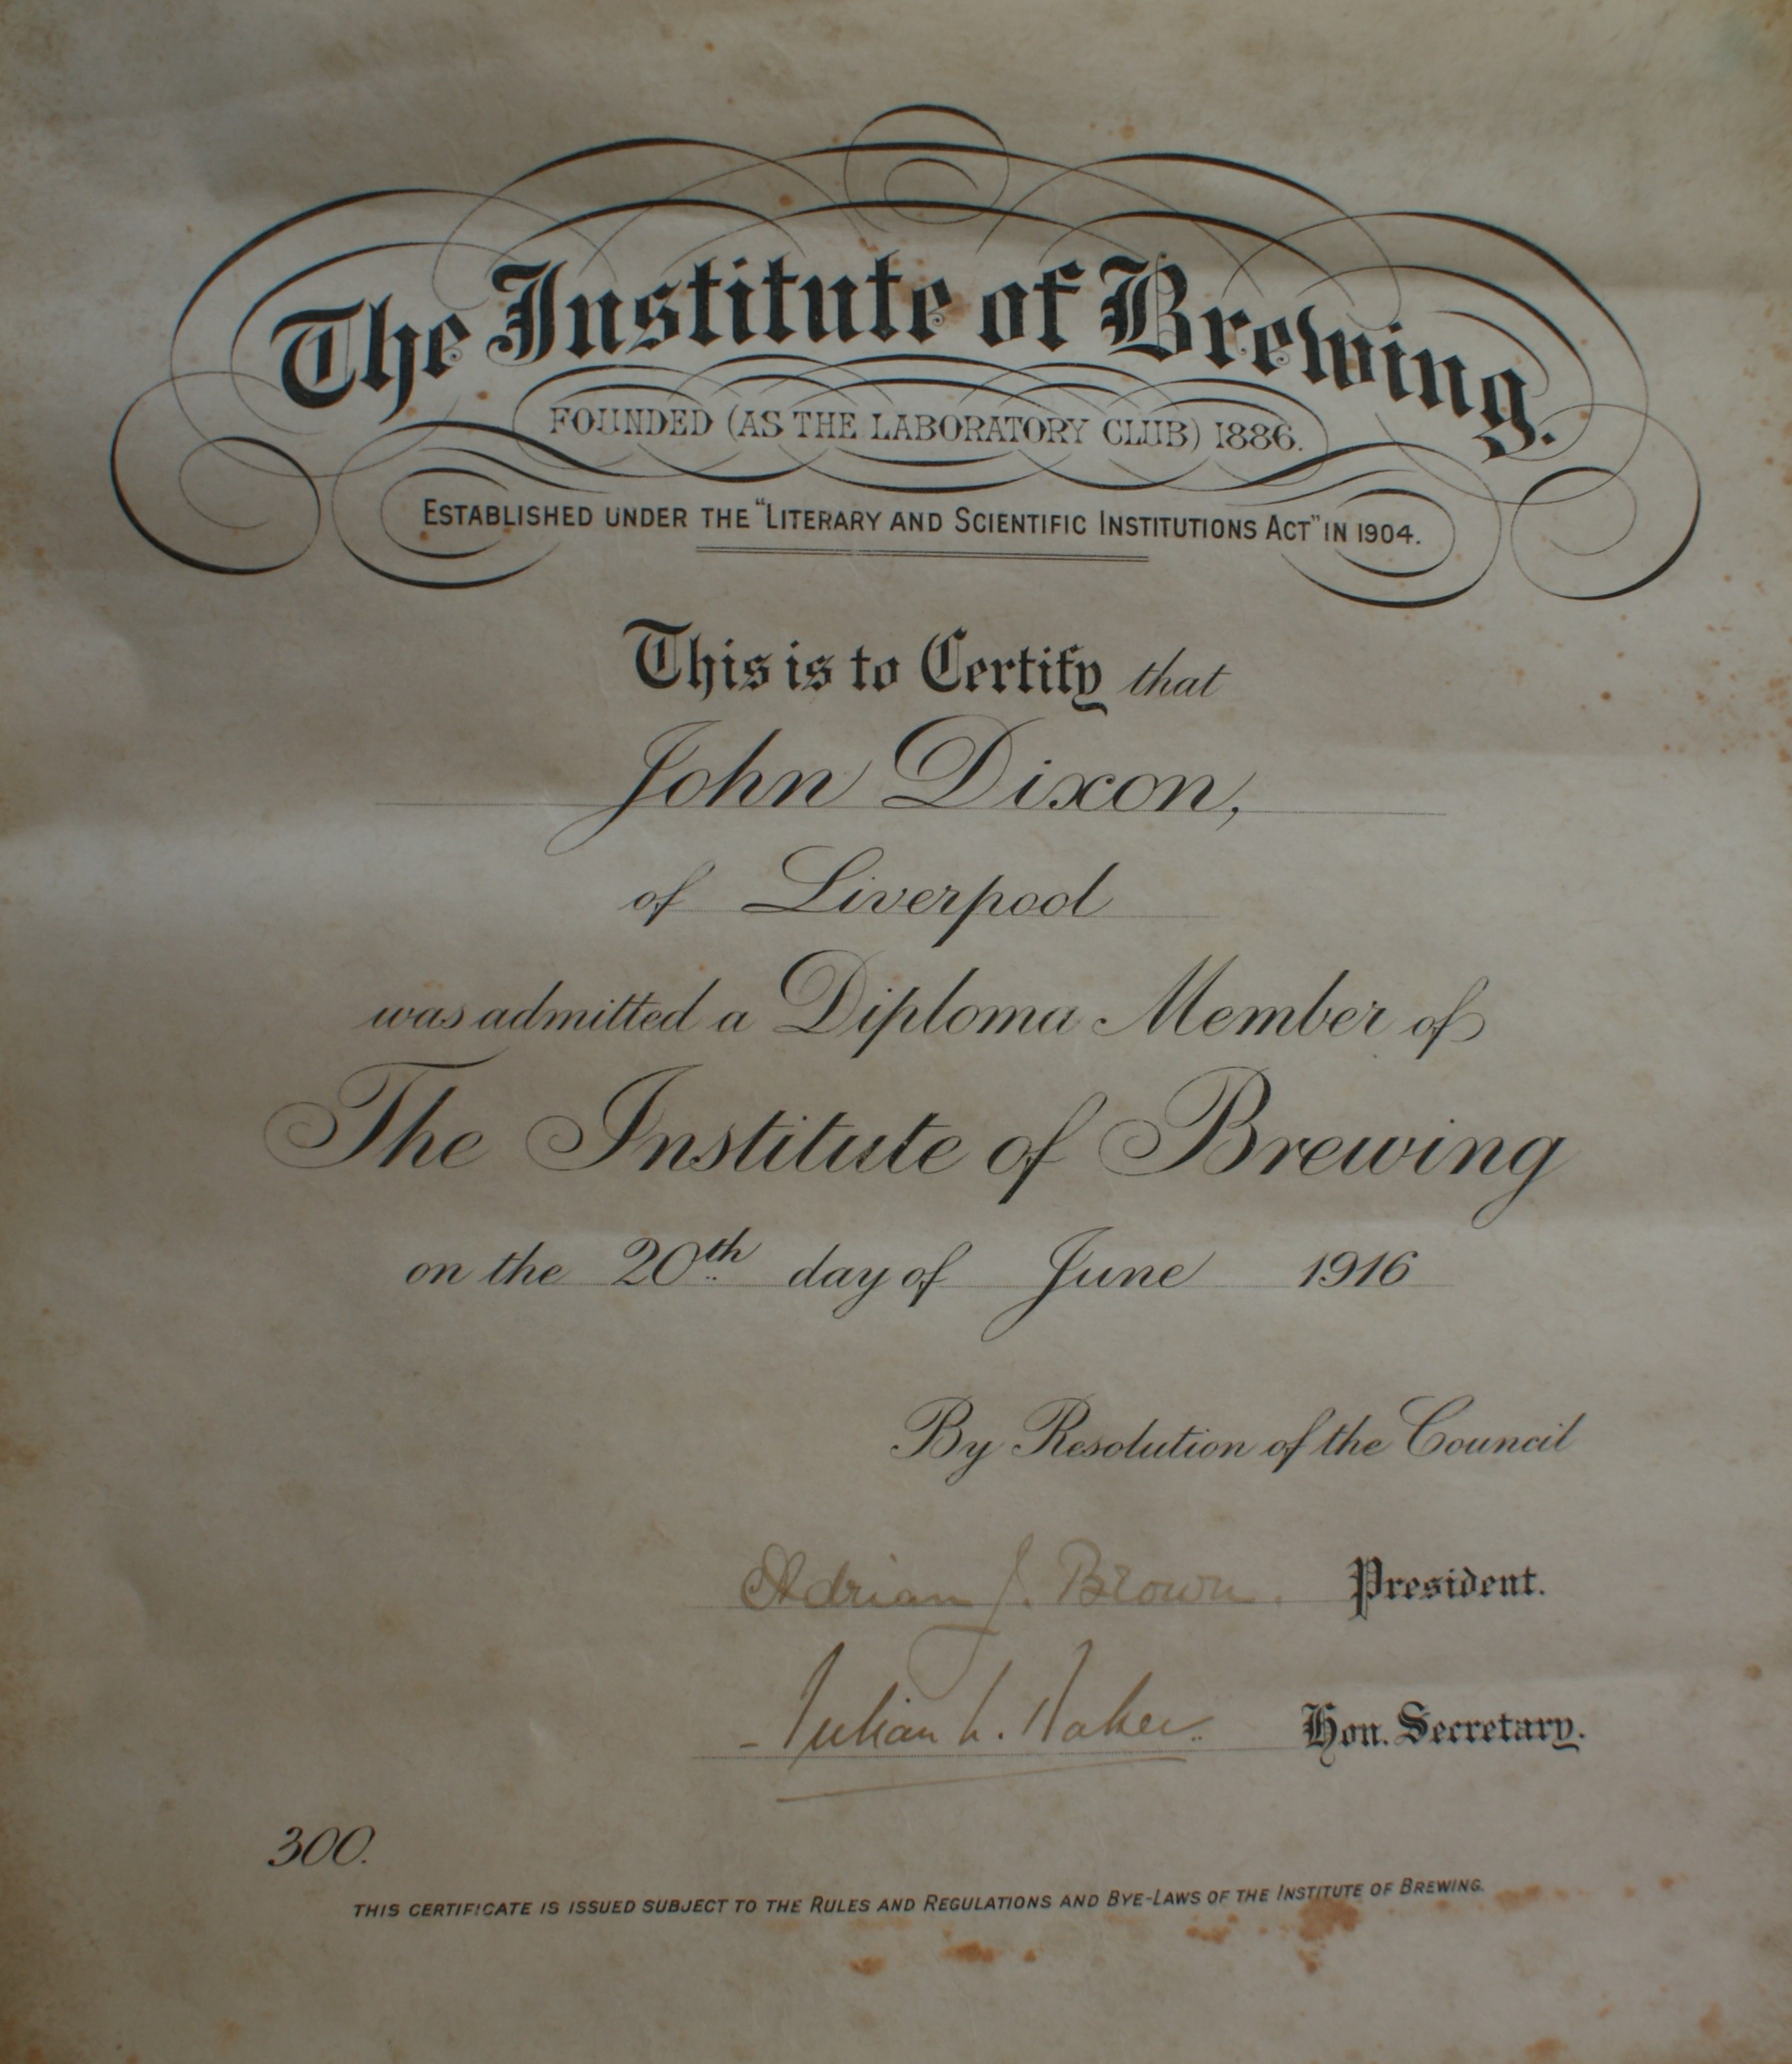 The Institute of Brewing.
FOUNDED (AS THE LABORATORY CLUB) 1886.
ESTABLISHED UNDER THE "LITERARY AND SCIENTIFIC INSTITUTIONS ACT" IN 1904.
This is to Certify that
John Dixon,
of Liverpool
was admitted a Diploma Member of
The Institute of Brewing
on the 20th day of June 1916
By Resolution of the Council
Adrian J. Brown. President.
Julian L. Baker. Hon. Secretary.
300.
THIS CERTIFICATE IS ISSUED SUBJECT TO THE RULES AND REGULATIONS AND BYE-LAWS OF THE INSTITUTE OF BREWING.